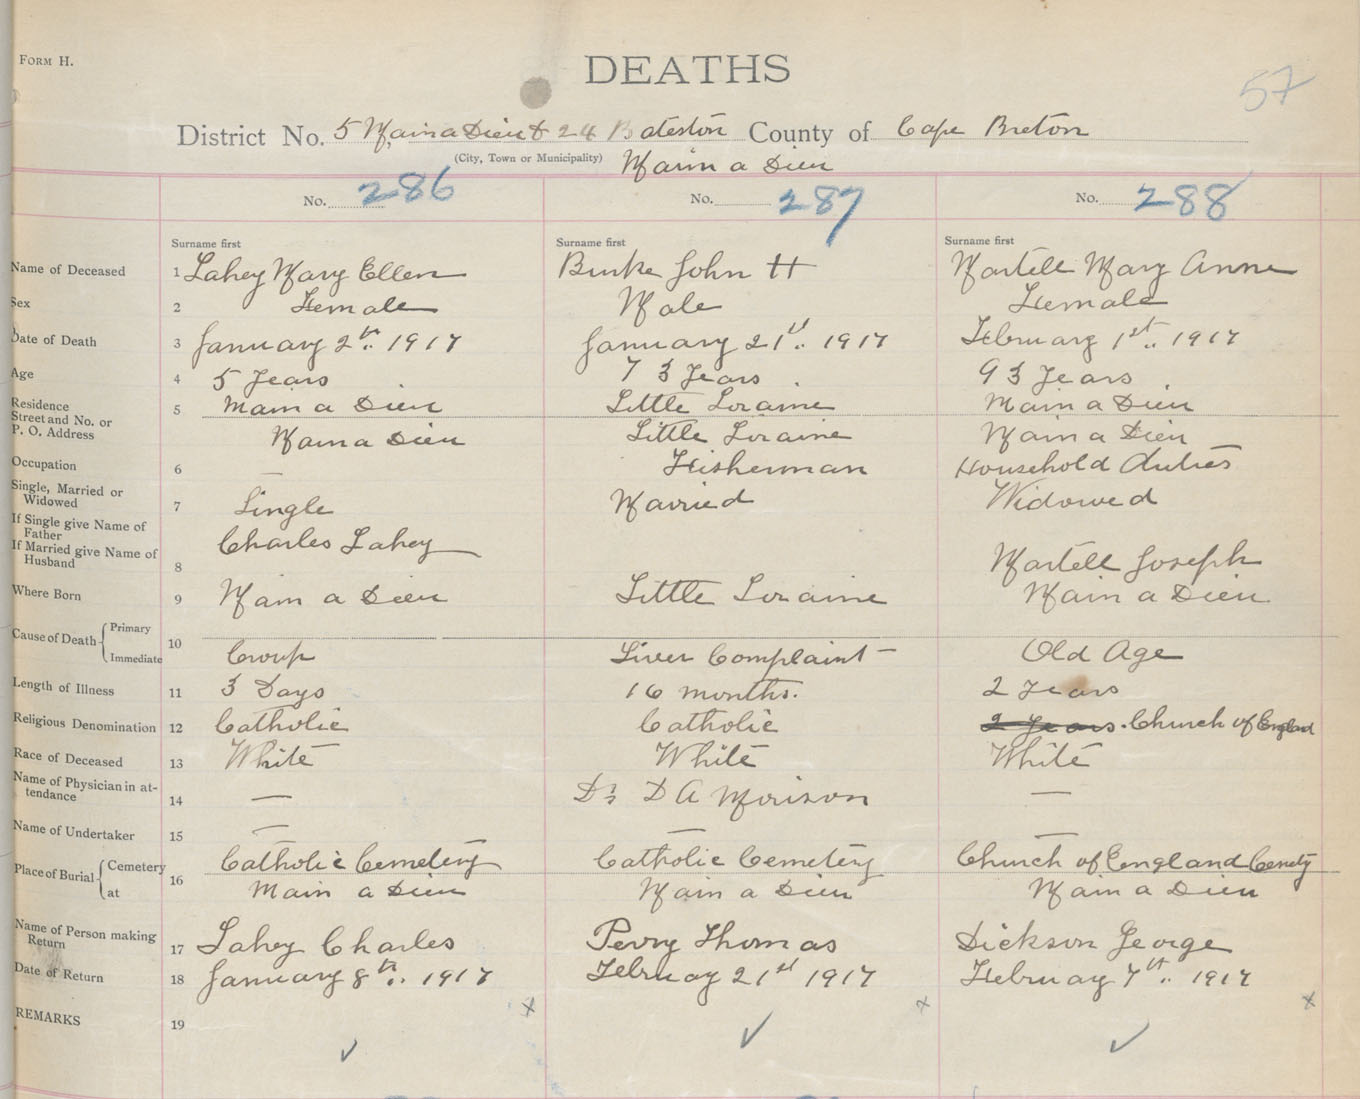 FORM H.
DEATHS
57
District No. 5 Main a Dieu & 24 Bateston County of Cape Breton
(City, Town or Municipality) Main a Dieu
No. 286 No. 287 No. 288
Surname first Surname first Surname first
Name of Deceased 1 Lahey Mary Ellen Burke John H Martell Mary Anne
Sex 2 Female Male Female
Date of Death 3 January 2th 1917 January 21st 1917 February 1st 1917
Age 4 5 Years 73 Years 93 Years
Residence 5 Main a Dieu Little Loraine Main a Dieu
Street and No. or
P. O. Address Main a Dieu Little Loraine Main a Dieu
Occupation 6 — Fisherman Household Duties
Single, Married or
Widowed 7 Single Married Widowed
If Single give Name of
Father Charles Lahey
If Married give Name of
Husband 8 Martell Joseph
Where Born 9 Main a Dieu Little Loraine Main a Dieu
Cause of Death { Primary
Immediate 10 Croup Liver Complaint Old Age
Length of Illness 11 3 Days 16 months. 2 Years
Religious Denomination 12 Catholic Catholic 2 Years. Church of England
Race of Deceased 13 White White White
Name of Physician in at-
tendance 14 — Dr D A Morison —
Name of Undertaker 15 — — —
Place of Burial { Cemetery 16 Catholic Cemetery Catholic Cemetery Church of England Cemety
at Main a Dieu Main a Dieu Main a Dieu
Name of Person making
Return 17 Lahey Charles Perry Thomas Dickson George
Date of Return 18 January 8th 1917 Februay 21st 1917 Februay 7th 1917
REMARKS 19